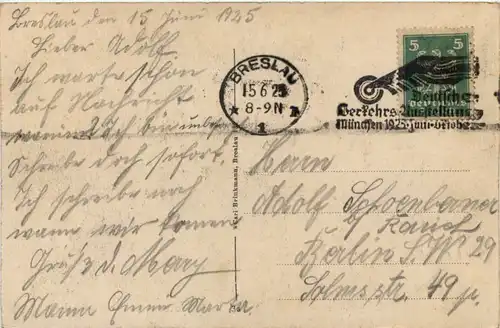 Breslau den 15 Juni 1925
Lieber Adolf
Ich warte schon
auf Nachricht
warum? Ich bin
Schreibe doch sofort.
Ich schreibe noch
wann wir komen
Grüße d. Mary
Mama Emmi Marta
Karl Brinkmann, Breslau
BRESLAU
15.6.25
* 8-9N *
1
5 5
Deutsche
Verkehrs-Ausstellung
München 1925: Juni-Oktob.
Herrn
Adolf Schoenberner
b/ Rauch
Berlin S.W 29
Solmsstr. 49 p.